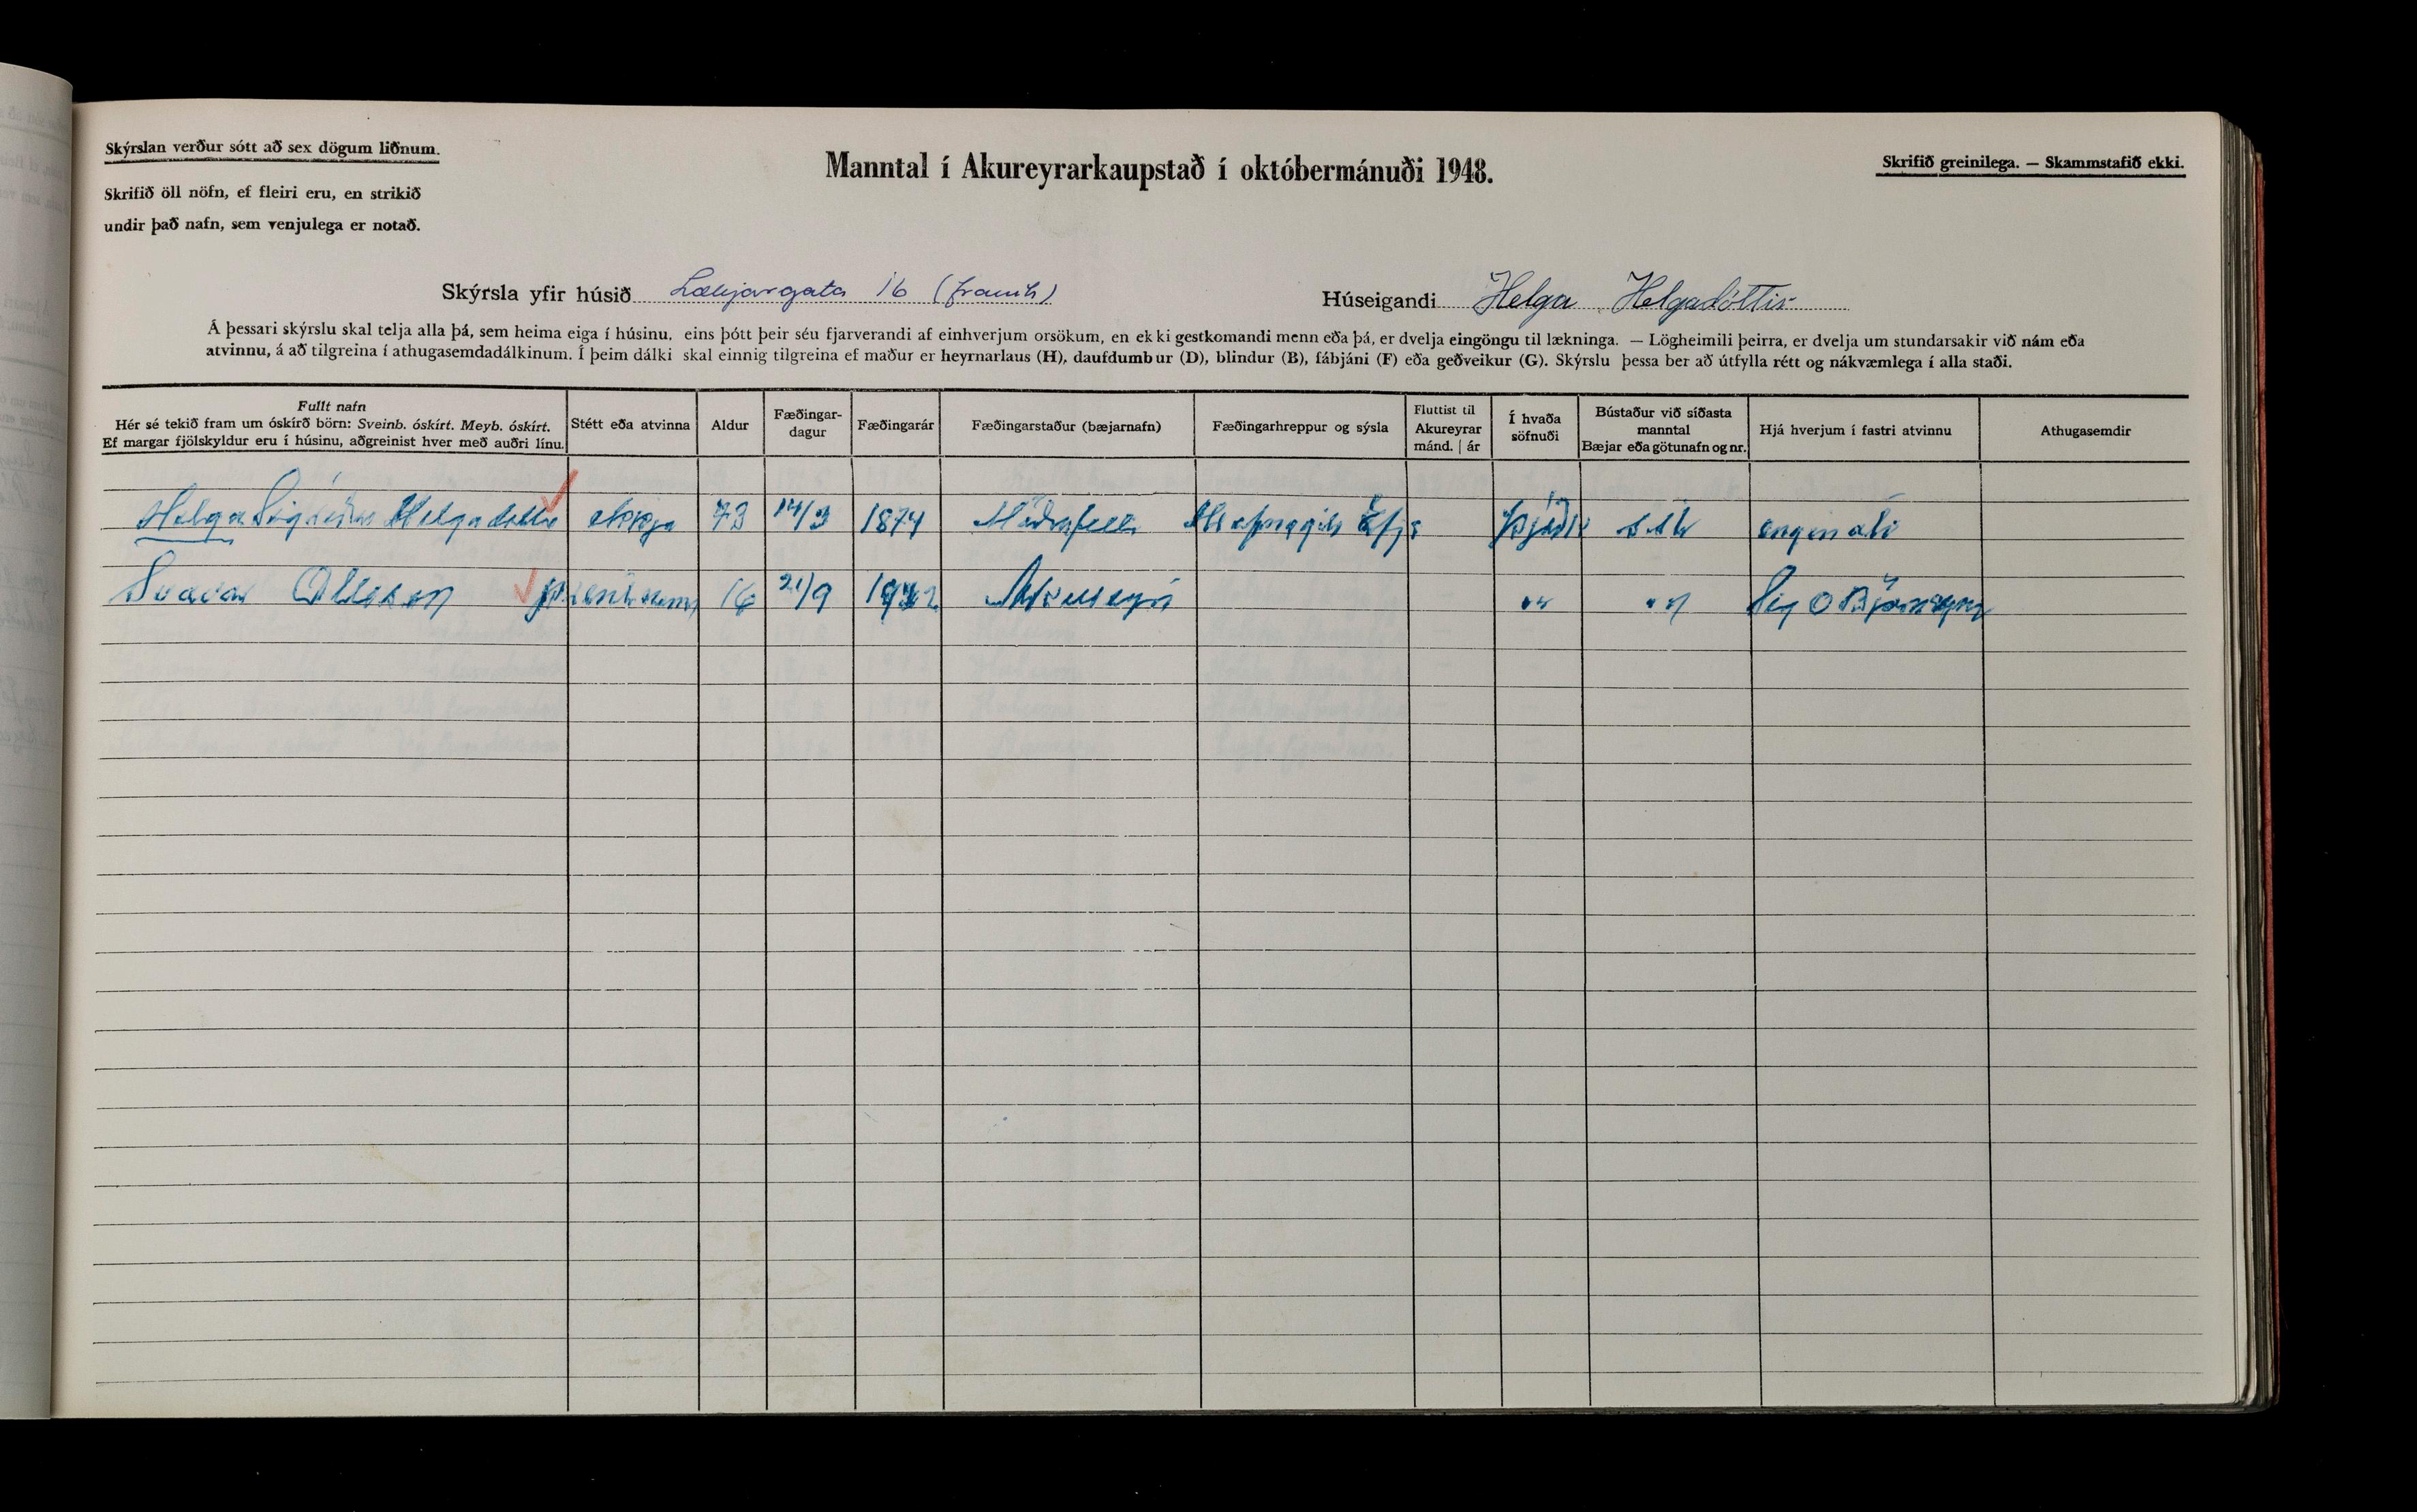 Skýrslan verður sótt að sex dögum liðnum.
Skrifið öll nöfn, ef fleiri eru, en strikið
undir það nafn, sem venjulega er notað.
Manntal í Akureyrarkaupstað í októbermánuði 1948.
Skrifið greinilega. — Skammstafið ekki.
Skýrsla yfir húsið Lækjargata 16 (framh)
Húseigandi Helga Helgadóttir
Á þessari skýrslu skal telja alla þá, sem heima eiga í húsinu, eins þótt þeir séu fjarverandi af einhverjum orsökum, en ekki gestkomandi menn eða þá, er dvelja eingöngu til lækninga. — Lögheimili þeirra, er dvelja um stundarsakir við nám eða
atvinnu, á að tilgreina í athugasemdadálkinum. Í þeim dálki skal einnig tilgreina ef maður er heyrnarlaus (H), daufdumbur (D), blindur (B), fábjáni (F) eða geðveikur (G). Skýrslu þessa ber að útfylla rétt og nákvæmlega í alla staði.
Fullt nafn
Hér sé tekið fram um óskírð börn: Sveinb. óskírt. Meyb. óskírt.
Ef margar fjölskyldur eru í húsinu, aðgreinist hver með auðri línu.
Stétt eða atvinna
Aldur
Fæðingar-
dagur
Fæðingarár
Fæðingarstaður (bæjarnafn)
Fæðingarhreppur og sýsla
Fluttist til
Akureyrar
mánd. | ár
Í hvaða
söfnuði
Bústaður við síðasta
manntal
Bæjar eða götunafn og nr.
Hjá hverjum í fastri atvinnu
Athugasemdir
Helga Helgadóttir ekkja 73 14/3 1874 Möðrufell Hrafnagils Eyf engin
Svavar Ottesen 16 21/9 1932 Akureyri Sig O Björnsson